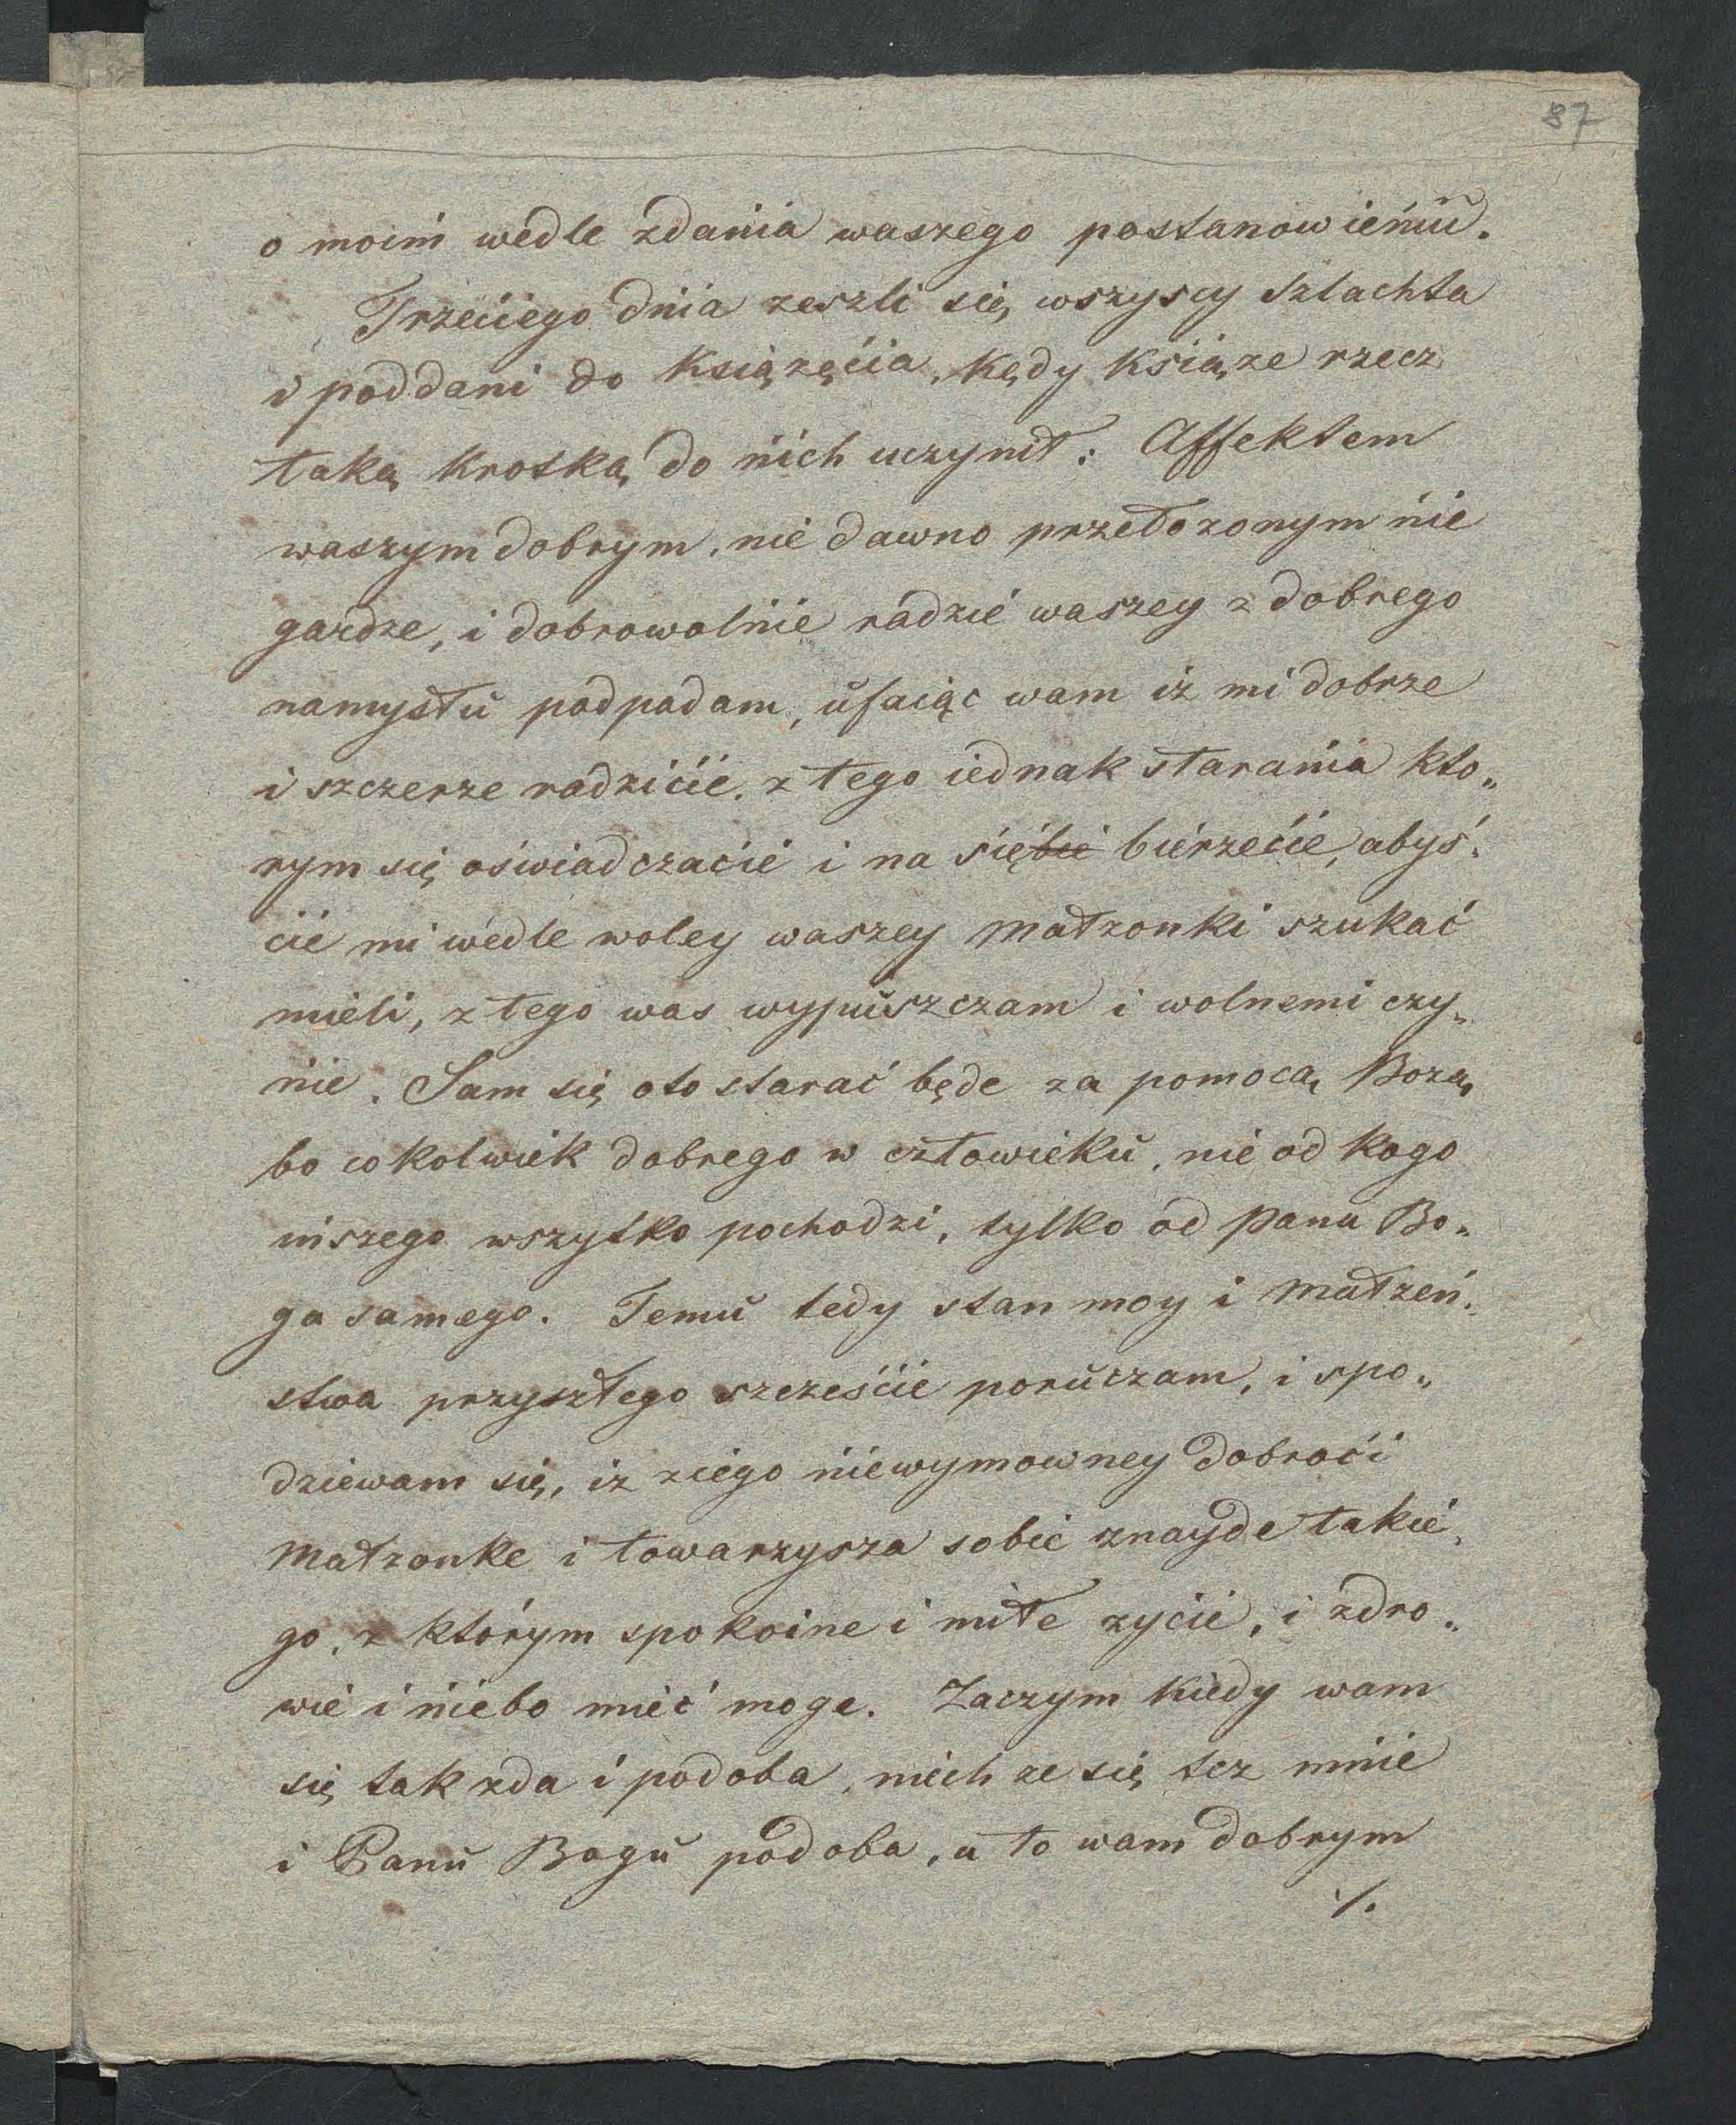 87
o moim wedle zdania waszego postanowieniu.
Trzeciego dnia zeszli się wszyscy Szlachta
i poddani do Książęcia, kędy Książe rzecz
taką krotką do nich uczynił: Affektem
waszym dobrym, nie dawno przełozonym nie
gardze, i dobrowolnie radzie waszey z dobrego
namysłu podpadam, ufaiąc wam iz mi dobrze
i szczerze radzicie. z tego iednak starania kto„
rym się oświadczacie i na się~~bie~~ bierzecie, abyś„
cie mi wedle woley waszey małzonki szukać
mieli, z tego was wypuszczam i wolnemi czy„
nie. Sam się oto starać będe za pomocą Bozą,
bo cokolwiek dobrego w człowieku, nie od kogo
inszego wszytko pochodzi, tylko od Pana Bo„
ga samego. Temu tedy stan moy i małzeń„
stwa przyszłego szczeście poruczam, i spo„
dziewam się, iz ziego niewymowney dobroci
małzonke i towarzysza sobie znayde takie„
go, z którym spokoine i miłe zycie, i zdro„
wie i niebo mieć moge. Zaczym kiedy wam
się tak zda i podoba, niech ze się tez mnie
i Panu Bogu podoba, a to wam dobrym
./.